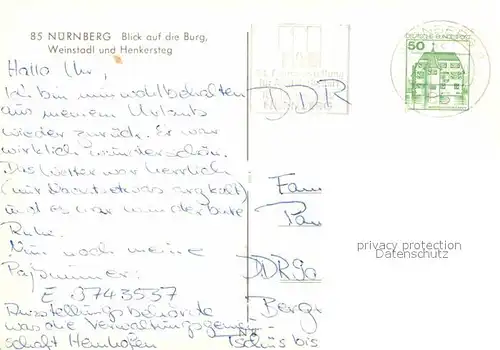 85 NÜRNBERG Blick auf die Burg,
Weinstadl und Henkersteg
50
DEUTSCHE BUNDESPOST
Hallo Ihr,
Ich bin nun wohlbehalten
aus meinem Urlaub
wieder zurück. Es war
wirklich wunderschön.
Das Wetter war herrlich
(nur Nachts etwas arg kalt)
und es war wunderbare
Ruhe.
Nun noch meine
Paßnummer:
E 3743537
Ausstellungsbehörde
was die Verwaltungsgemein-
schaft Hemhofen
Tschüs bis
DDR
Fam
DDR
Berg
privacy protection
Datenschutz